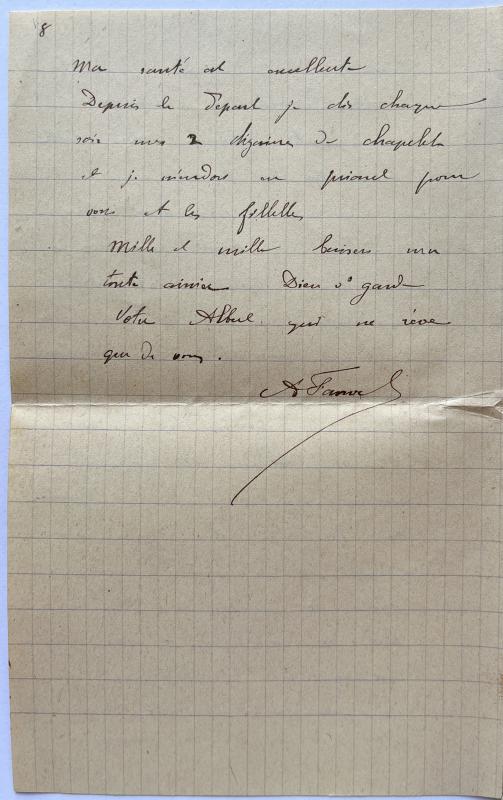 8
Ma santé est excellente
Depuis le départ je dis chaque
soir mes 2 dizaines de chapelets
et je m'endors en priant pour
vous et les fillettes
Mille et mille baisers ma
toute aimée Dieu vs garde
Votre Albert qui ne rêve
que de vous.
A